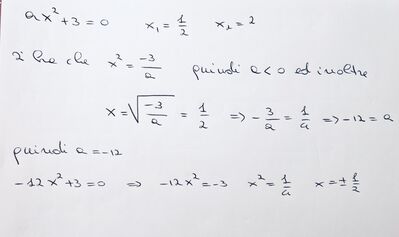 ax² + 3 = 0 x₁ = 1/2 x₂ = 2
Si ha che x² = -3/a quindi a < 0 ed inoltre
x = √(-3/a) = 1/2 => -3/a = 1/4 => -12 = a
quindi a = -12
-12x² + 3 = 0 => -12x² = -3 x² = 1/4 x = ± 1/2